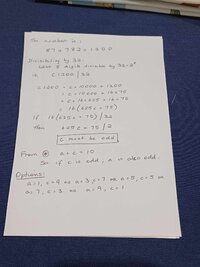 The number is:
87a782c1200
Divisibility by 32:
Last 5 digits divisible by 32 = 2⁵
c1200 / 32
= 1200 = c × 10000 + 1200
= c × 10000 + 16 × 75
= c × 16 × 625 + 16 × 75
= 16(625c + 75)
If 16(625c + 75) / 32
Then 625c + 75 / 2
c must be odd
From ⊛ a + c = 10
So if c is odd, a is also odd
Options:
a = 1, c = 9 or a = 3, c = 7 or a = 5, c = 5 or
a = 7, c = 3 or a = 9, c = 1